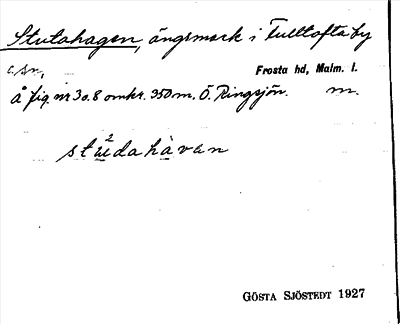 Stutahagen, ängsmark i Fulltofta by
o. sn,
Frosta hd, Malm. l.
å fig. nr 3 o. 8 omkr. 350 m. Ö. Ringsjön. m.
stu²dahàvan
GÖSTA SJÖSTEDT 1927